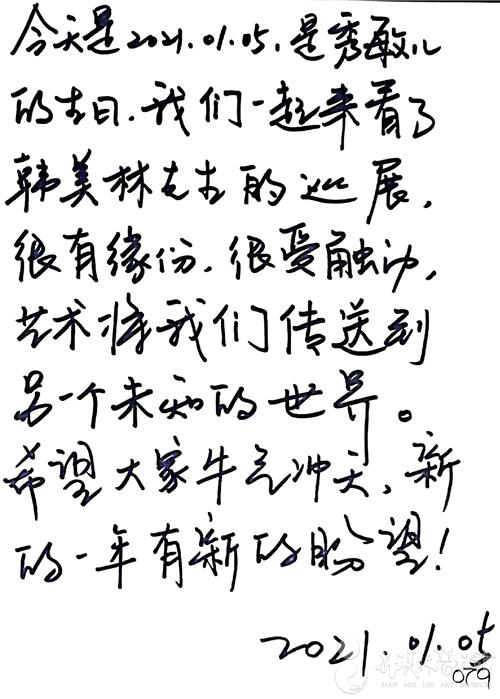 今天是2021.01.05,是秀敏儿
的生日.我们一起来看了
韩美林先生的巡展,
很有缘份.很受触动,
艺术将我们传送到
另一个未知的世界。
希望大家牛气冲天,新
的一年有新的盼望!
2021.01.05
079
HAN MEI LIN ART MUSEUM